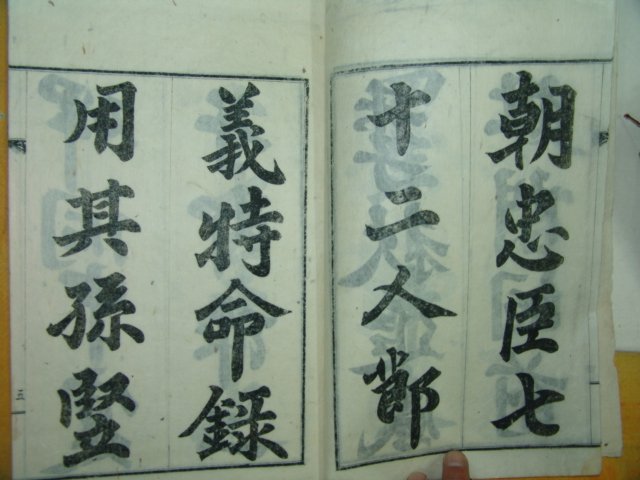 朝忠臣七
十二人節
義特命録
用其孫竪
三